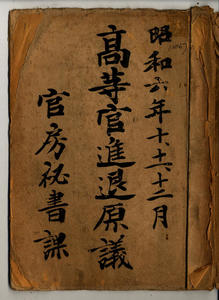 昭和六年十、十一、十二月
高等官進退原議
官房秘書課